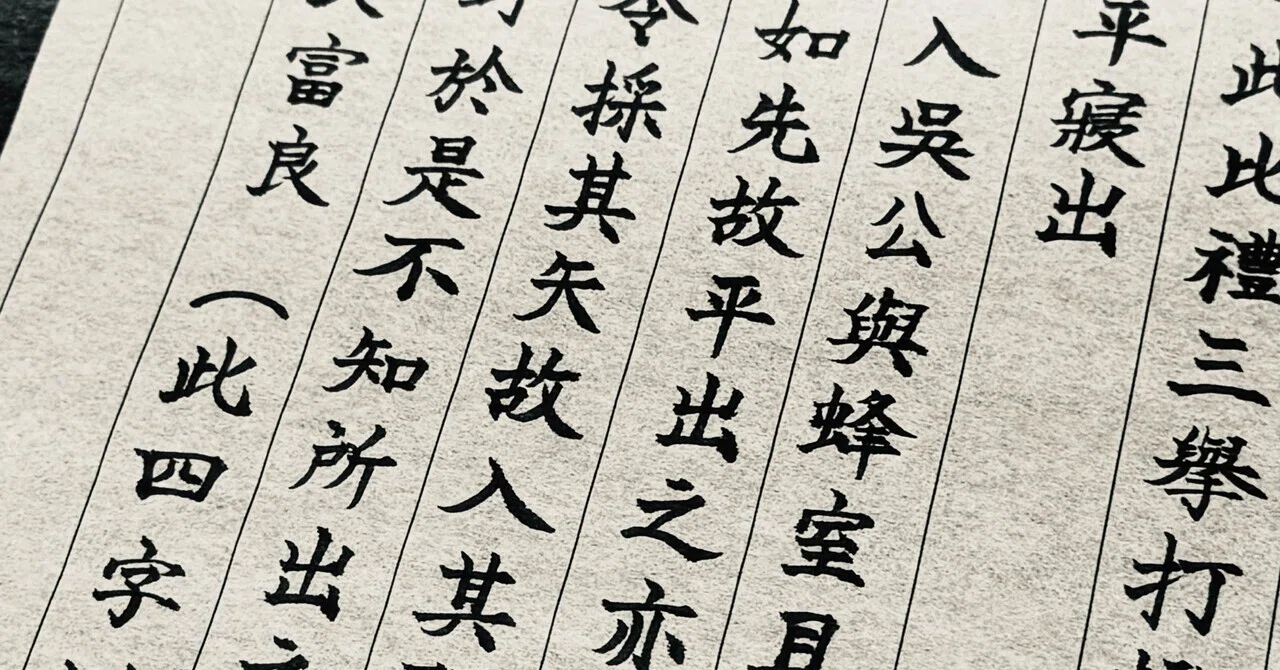 此比禮三舉打
平寢出
入吳公與蜂室且
如先故平出之亦
令採其矢故入其
於是不知所出之
富良（此四字